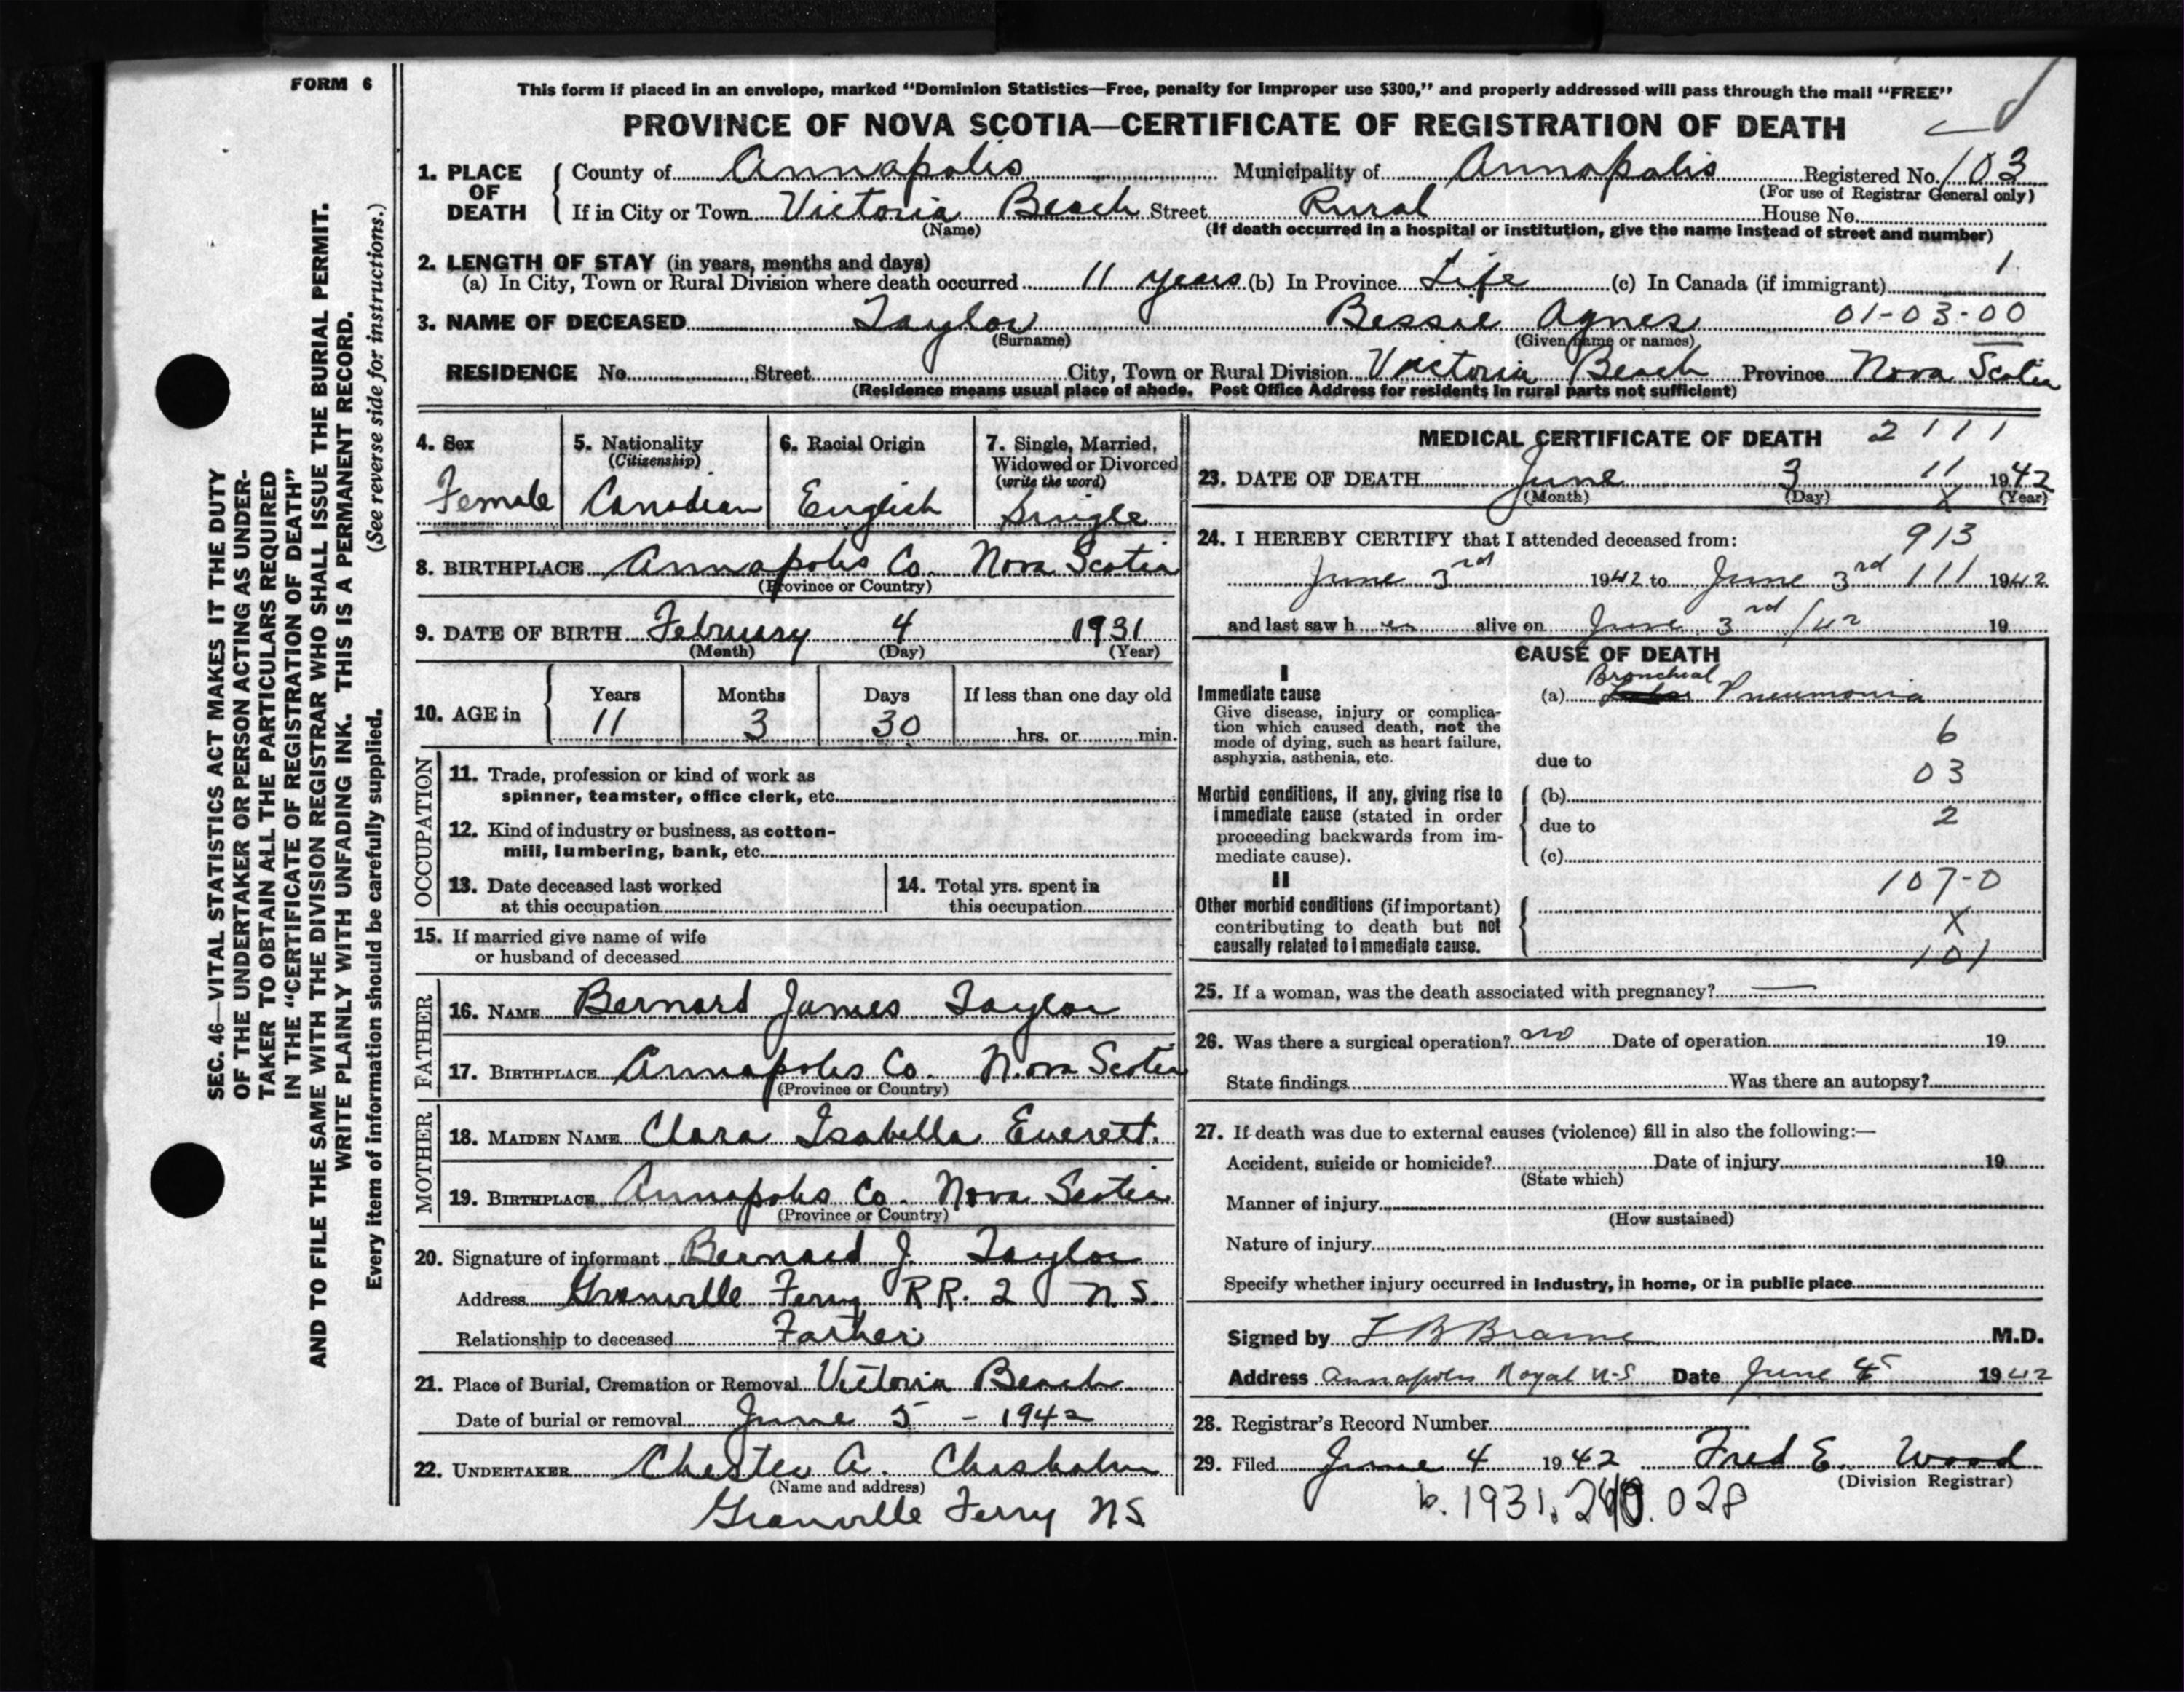 FORM 6
SEC. 46—VITAL STATISTICS ACT MAKES IT THE DUTY
OF THE UNDERTAKER OR PERSON ACTING AS UNDER-
TAKER TO OBTAIN ALL THE PARTICULARS REQUIRED
IN THE "CERTIFICATE OF REGISTRATION OF DEATH"
AND TO FILE THE SAME WITH THE DIVISION REGISTRAR WHO SHALL ISSUE THE BURIAL PERMIT.
WRITE PLAINLY WITH UNFADING INK. THIS IS A PERMANENT RECORD.
Every item of information should be carefully supplied. (See reverse side for instructions.)
This form if placed in an envelope, marked "Dominion Statistics—Free, penalty for improper use $300," and properly addressed will pass through the mail "FREE"
PROVINCE OF NOVA SCOTIA—CERTIFICATE OF REGISTRATION OF DEATH
1. PLACE OF DEATH County of Annapolis Municipality of Annapolis Registered No. 103
(For use of Registrar General only)
If in City or Town Victoria Beach Street Rural House No.
(Name) (If death occurred in a hospital or institution, give the name instead of street and number)
2. LENGTH OF STAY (in years, months and days) 1
(a) In City, Town or Rural Division where death occurred 11 years (b) In Province Life (c) In Canada (if immigrant)
3. NAME OF DECEASED Taylor Bessie Agnes 01-03-00
(Surname) (Given name or names)
RESIDENCE No. Street City, Town or Rural Division Victoria Beach Province Nova Scotia
(Residence means usual place of abode. Post Office Address for residents in rural parts not sufficient)
4. Sex 5. Nationality 6. Racial Origin 7. Single, Married,
(Citizenship) Widowed or Divorced
(write the word)
Female Canadian English Single
8. BIRTHPLACE Annapolis Co. Nova Scotia
(Province or Country)
9. DATE OF BIRTH February 4 1931
(Month) (Day) (Year)
10. AGE in Years Months Days If less than one day old
11 3 30 hrs. or min.
OCCUPATION
11. Trade, profession or kind of work as
spinner, teamster, office clerk, etc.
12. Kind of industry or business, as cotton-
mill, lumbering, bank, etc.
13. Date deceased last worked 14. Total yrs. spent in
at this occupation this occupation
15. If married give name of wife
or husband of deceased
FATHER
16. NAME Bernard James Taylor
17. BIRTHPLACE Annapolis Co. Nova Scotia
(Province or Country)
MOTHER
18. MAIDEN NAME Clara Isabella Everett.
19. BIRTHPLACE Annapolis Co. Nova Scotia
(Province or Country)
20. Signature of informant Bernard J. Taylor
Address Granville Ferry R.R. 2 N.S.
Relationship to deceased Father
21. Place of Burial, Cremation or Removal Victoria Beach
Date of burial or removal June 5 - 1942
22. UNDERTAKER Chester A. Chisholm
(Name and address)
Granville Ferry N.S.
MEDICAL CERTIFICATE OF DEATH 2111
23. DATE OF DEATH June 3 11 1942
(Month) (Day) X (Year)
24. I HEREBY CERTIFY that I attended deceased from: 913
June 3rd 1942 to June 3rd 111 1942
and last saw her alive on June 3rd /42 19
CAUSE OF DEATH
I Bronchial
Immediate cause (a) Pneumonia
Give disease, injury or complica-
tion which caused death, not the
mode of dying, such as heart failure, 6
asphyxia, asthenia, etc. due to 03
Morbid conditions, if any, giving rise to (b)
immediate cause (stated in order due to 2
proceeding backwards from im-
mediate cause). (c)
II 107-0
Other morbid conditions (if important)
contributing to death but not X
causally related to immediate cause. 101
25. If a woman, was the death associated with pregnancy? —
26. Was there a surgical operation? no Date of operation 19
State findings Was there an autopsy?
27. If death was due to external causes (violence) fill in also the following:—
Accident, suicide or homicide? Date of injury 19
(State which)
Manner of injury
(How sustained)
Nature of injury
Specify whether injury occurred in industry, in home, or in public place
Signed by M.D.
Address Annapolis Royal N-S Date June 1942
28. Registrar's Record Number
29. Filed June 4 1942 Fred E. Wood
(Division Registrar)
b. 1931. 028